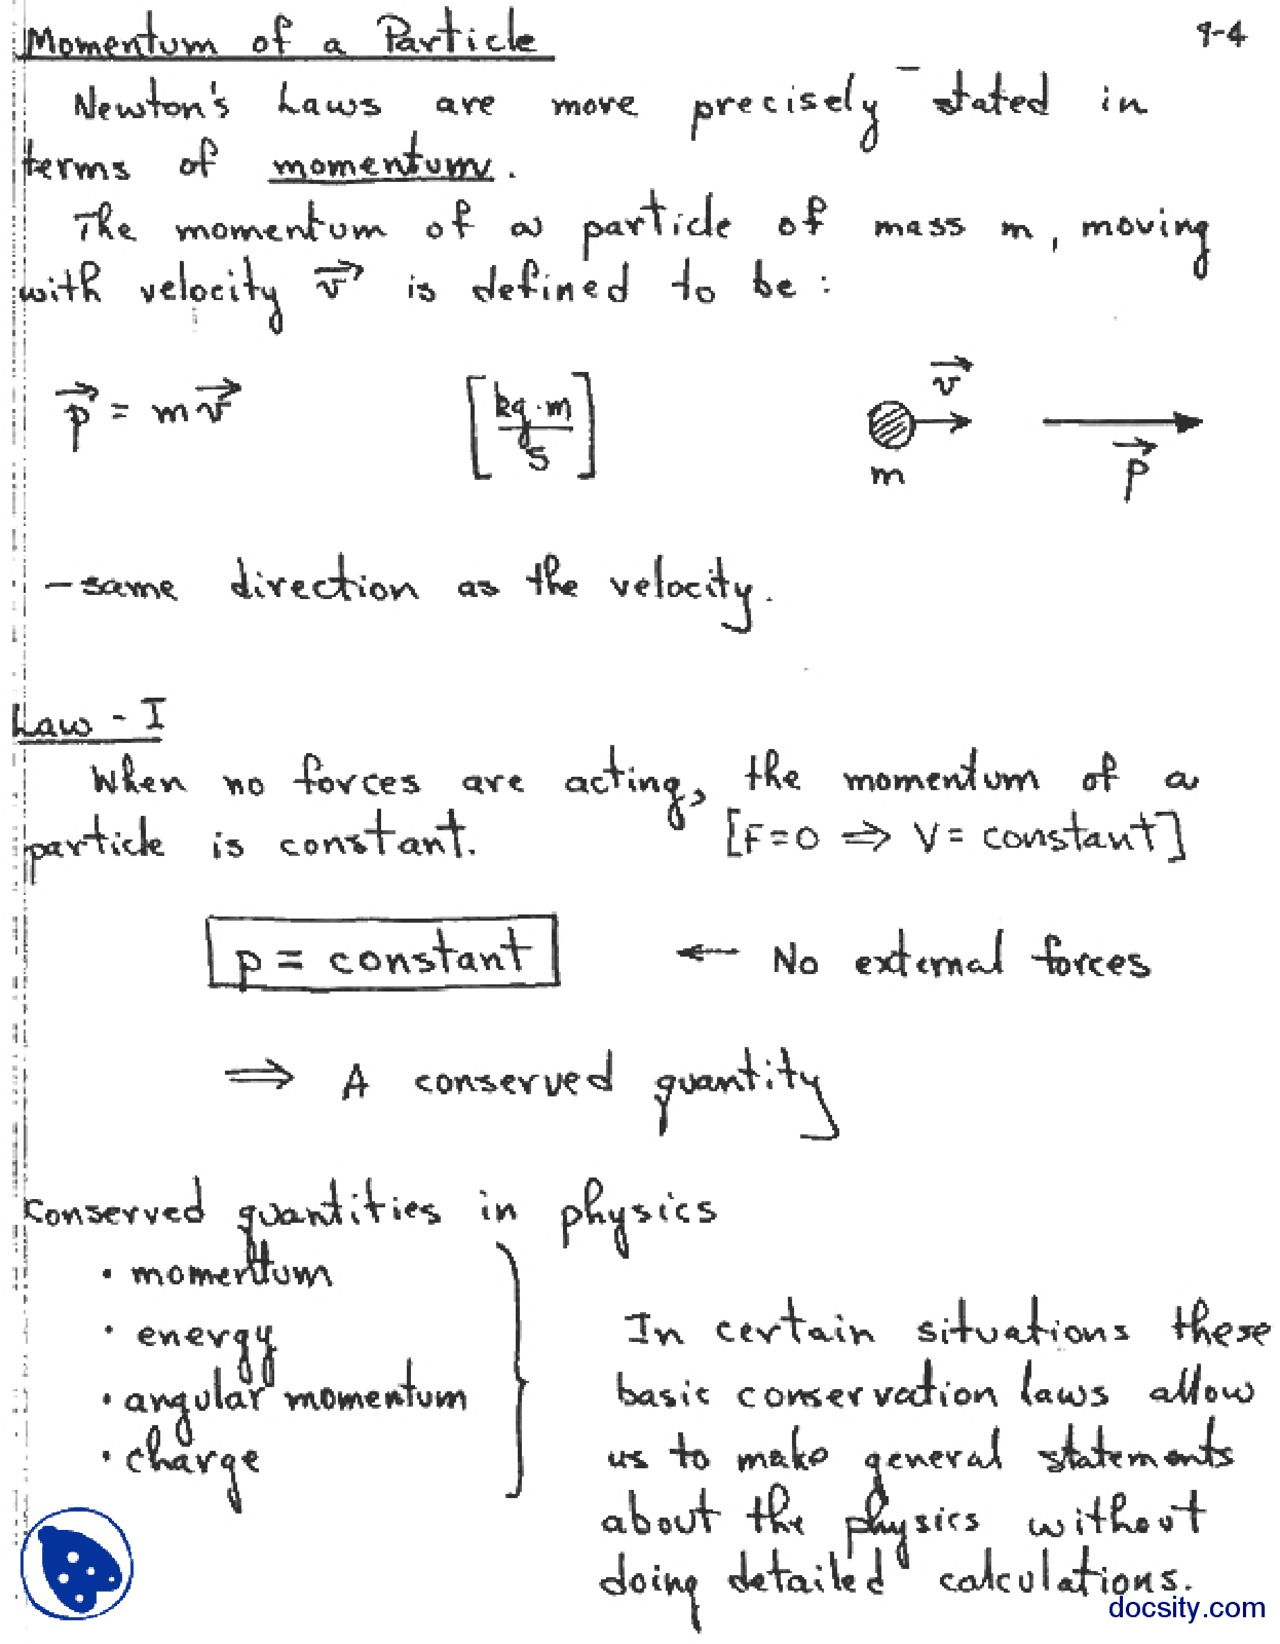 Momentum of a Particle 9-4
Newton's Laws are more precisely stated in
terms of momentum.
The momentum of a particle of mass m, moving
with velocity v⃗ is defined to be :
p⃗ = mv⃗ [kg·m/s] v⃗
m p⃗
- same direction as the velocity.
Law - I
When no forces are acting, the momentum of a
particle is constant. [F=0 ⇒ V= constant]
p = constant ← No external forces
⇒ A conserved quantity
Conserved quantities in physics
• momentum
• energy
• angular momentum
• charge
In certain situations these
basic conservation laws allow
us to make general statements
about the physics without
doing detailed calculations.
docsity.com